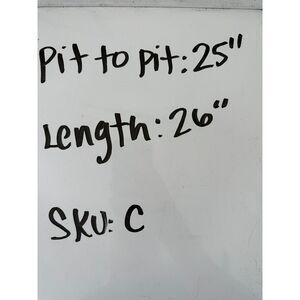 Pit to Pit: 25"
Length: 26"
SKU: C